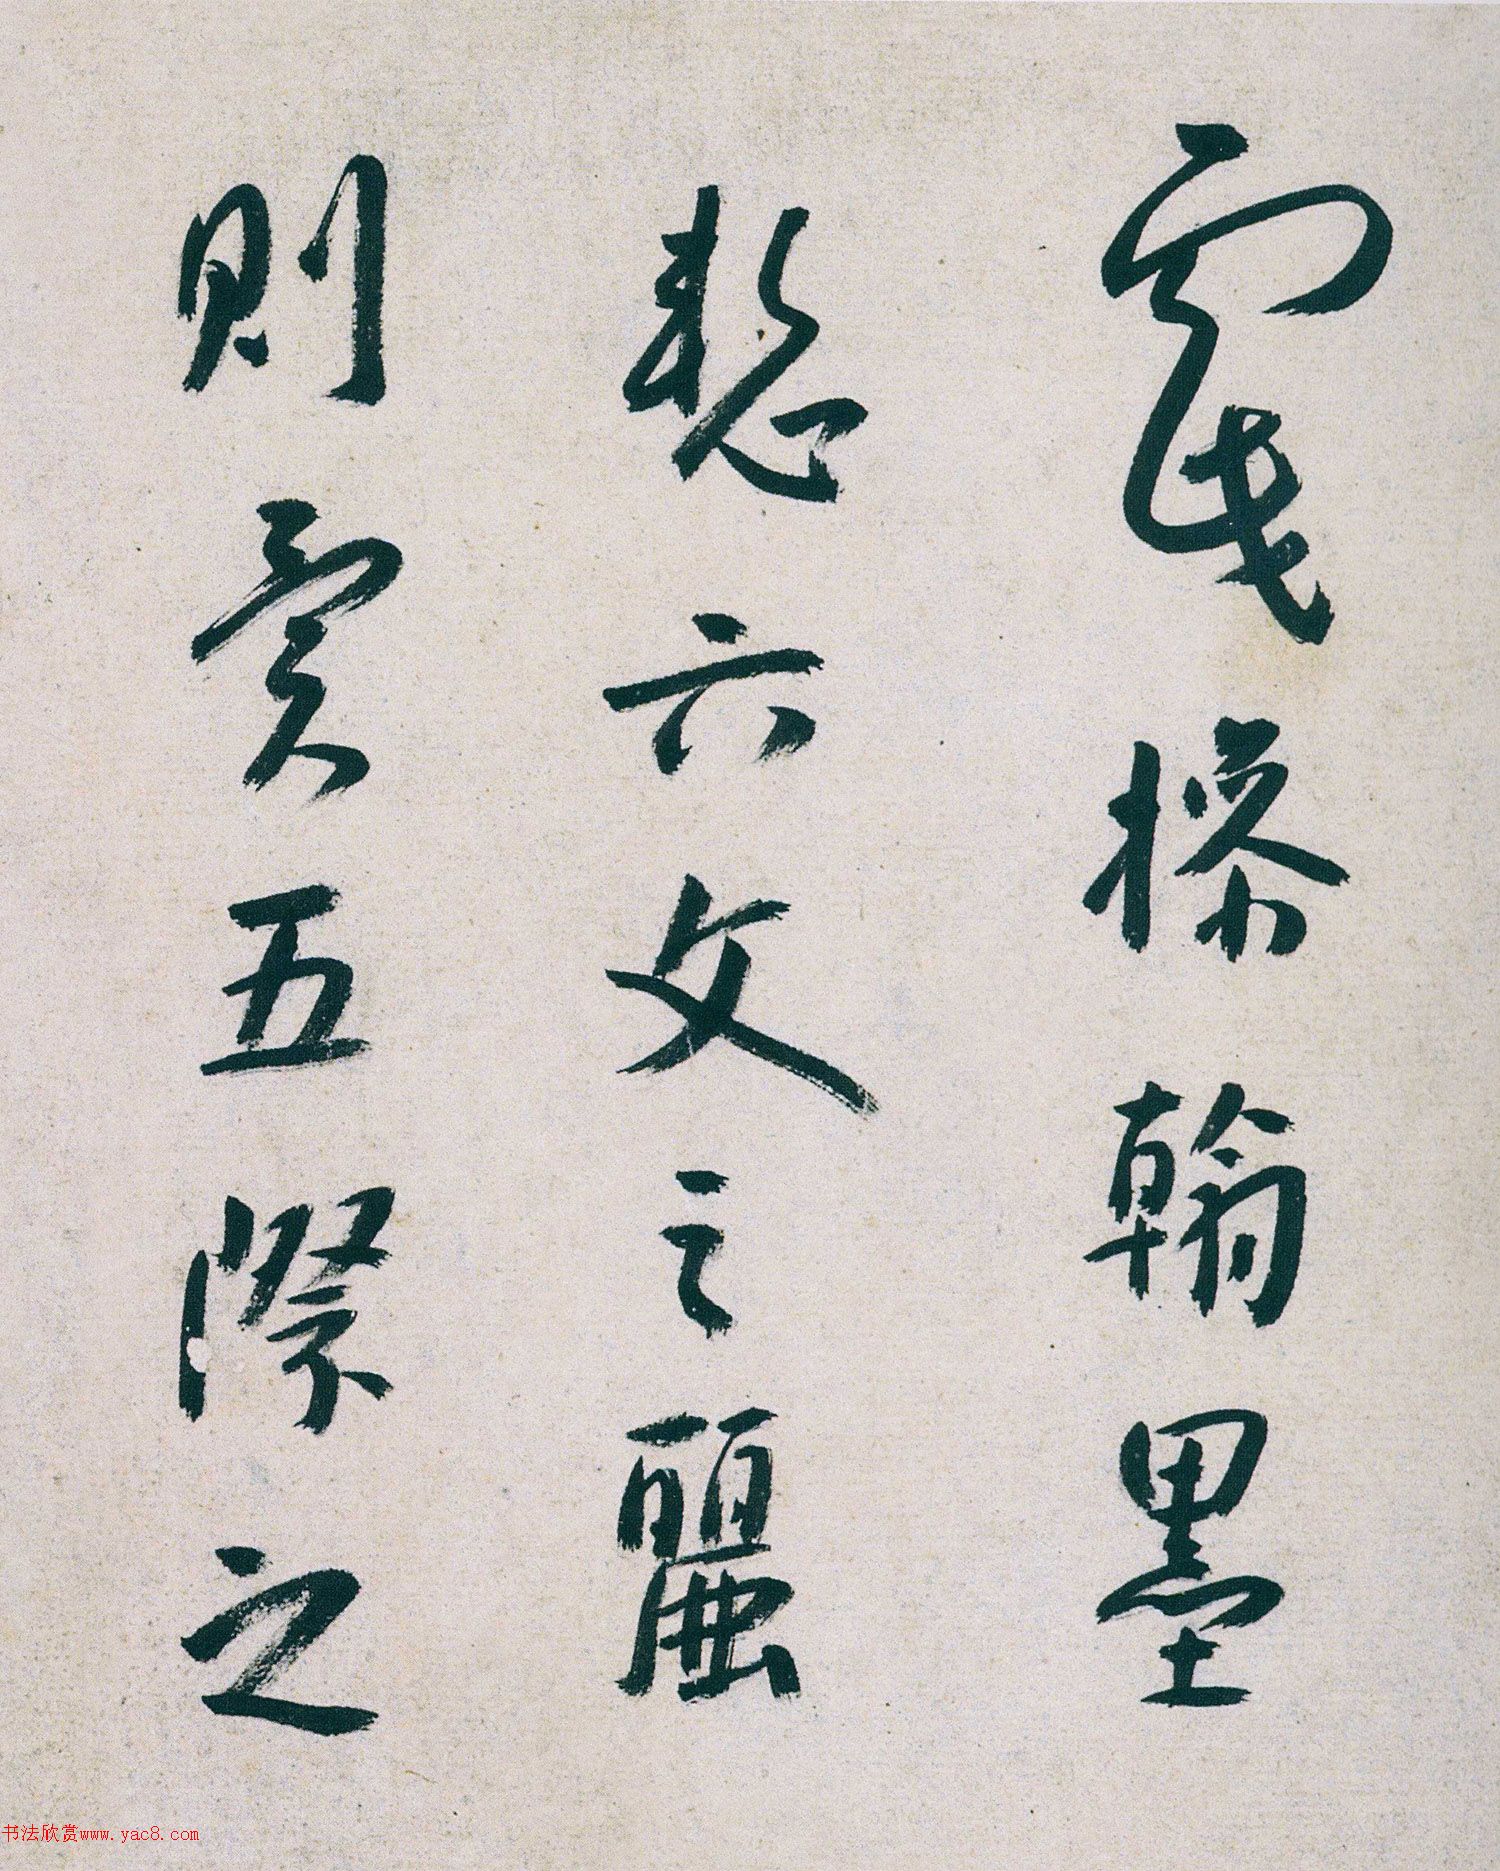 操翰墨
慙六文之麗
則五際之
书法欣赏www.yac8.com